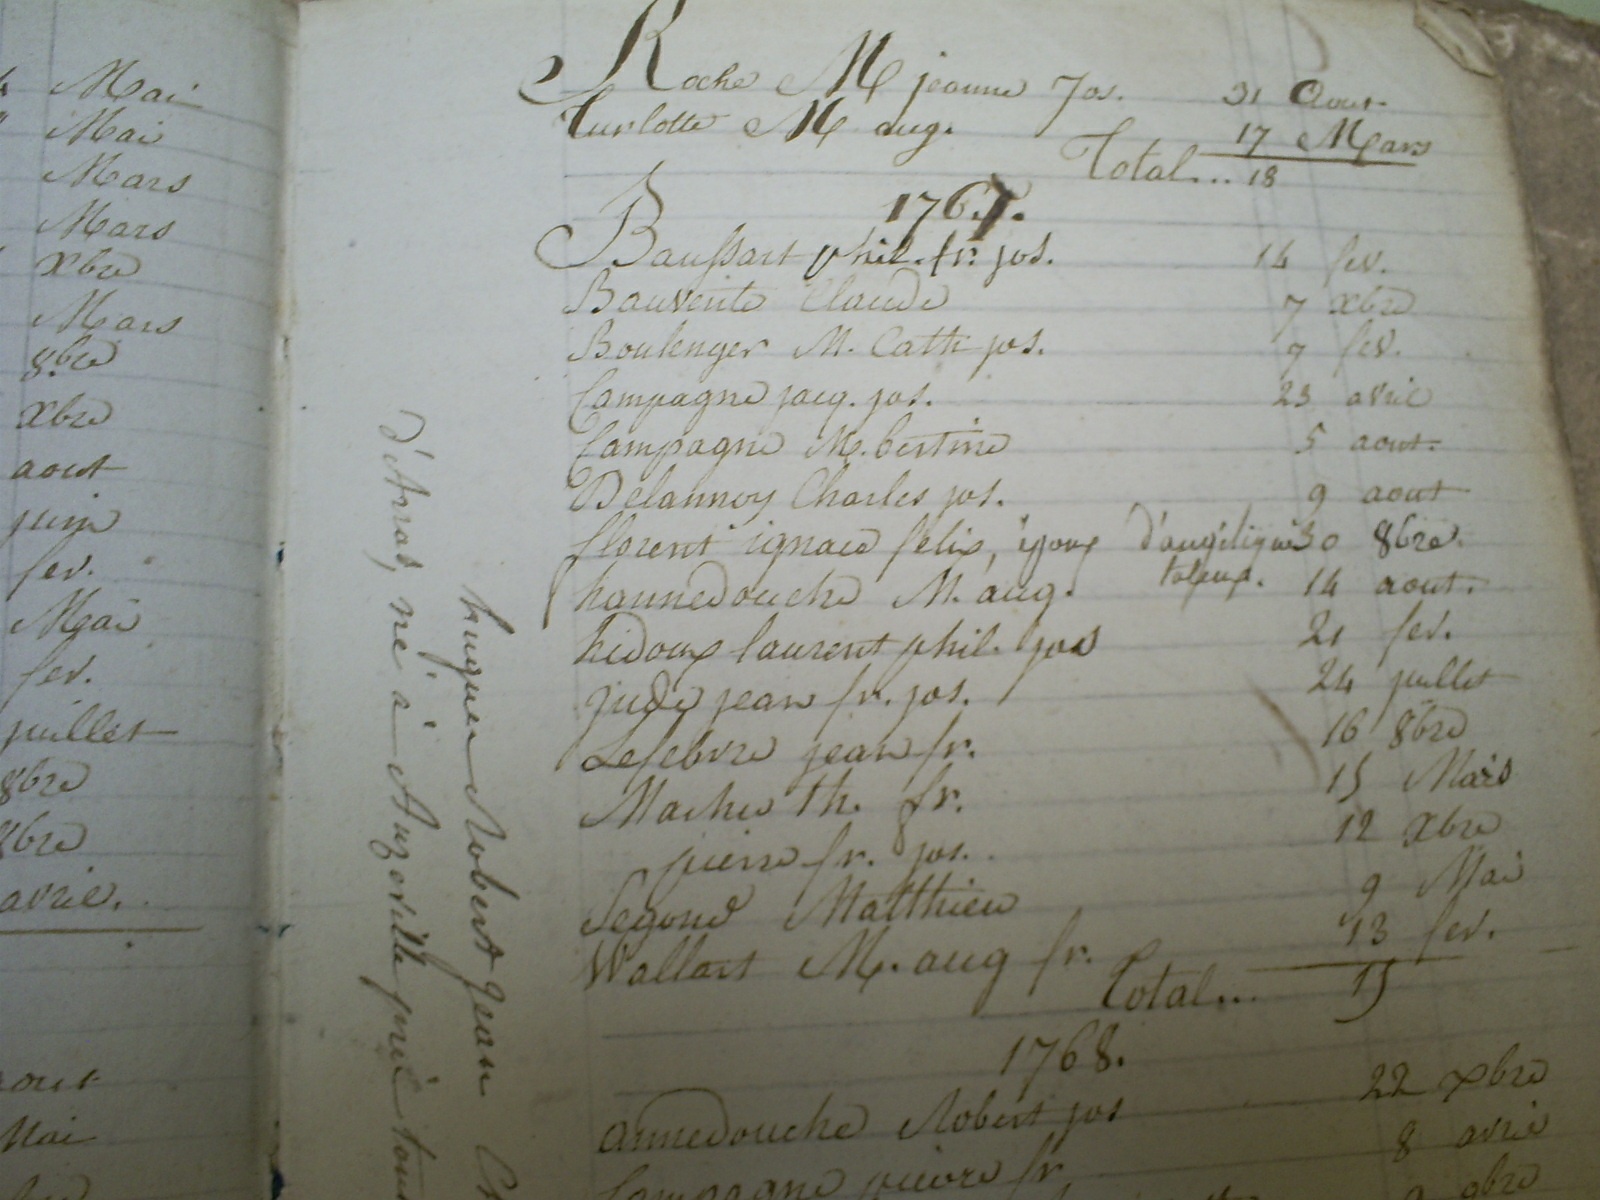 Mai
Mai
Mars
Mars
xbre
Mars
8bre
xbre
aout
juin
fev.
Mai
fev.
juillet
8bre
8bre
avril.
aout
Mai
Roche M jeanne Jos. 31 Aout.
Turlotte M aug. 17 Mars
Total... 18
1767.
Baussart phil. fr. jos. 14 fev.
Bauvente Claude 7 xbre
Boulenger M. Cath jos. 7 fev.
Campagne jacq. jos. 23 avril
Campagne M. bertine 5 aout.
Delannoy Charles jos. 9 aout
florent ignace felix, époux d'angélique 30 8bre.
hannedouche M. aug. 14 aout.
hidoux laurent phil. jos 21 fev.
jude jean fr. jos. 24 juillet
Lefebvre jean fr. 16 8bre
Mathieu th. fr. 15 Mars
pierre fr. jos. 12 xbre
Segond Matthieu 9 Mai
Wallart M. aug fr. 13 fev.
Total... 15
1768.
annedouche Robert jos 22 xbre
Campagne pierre fr. 8 avril
hugues Robert jean
d'Arras, né à Auzoville près